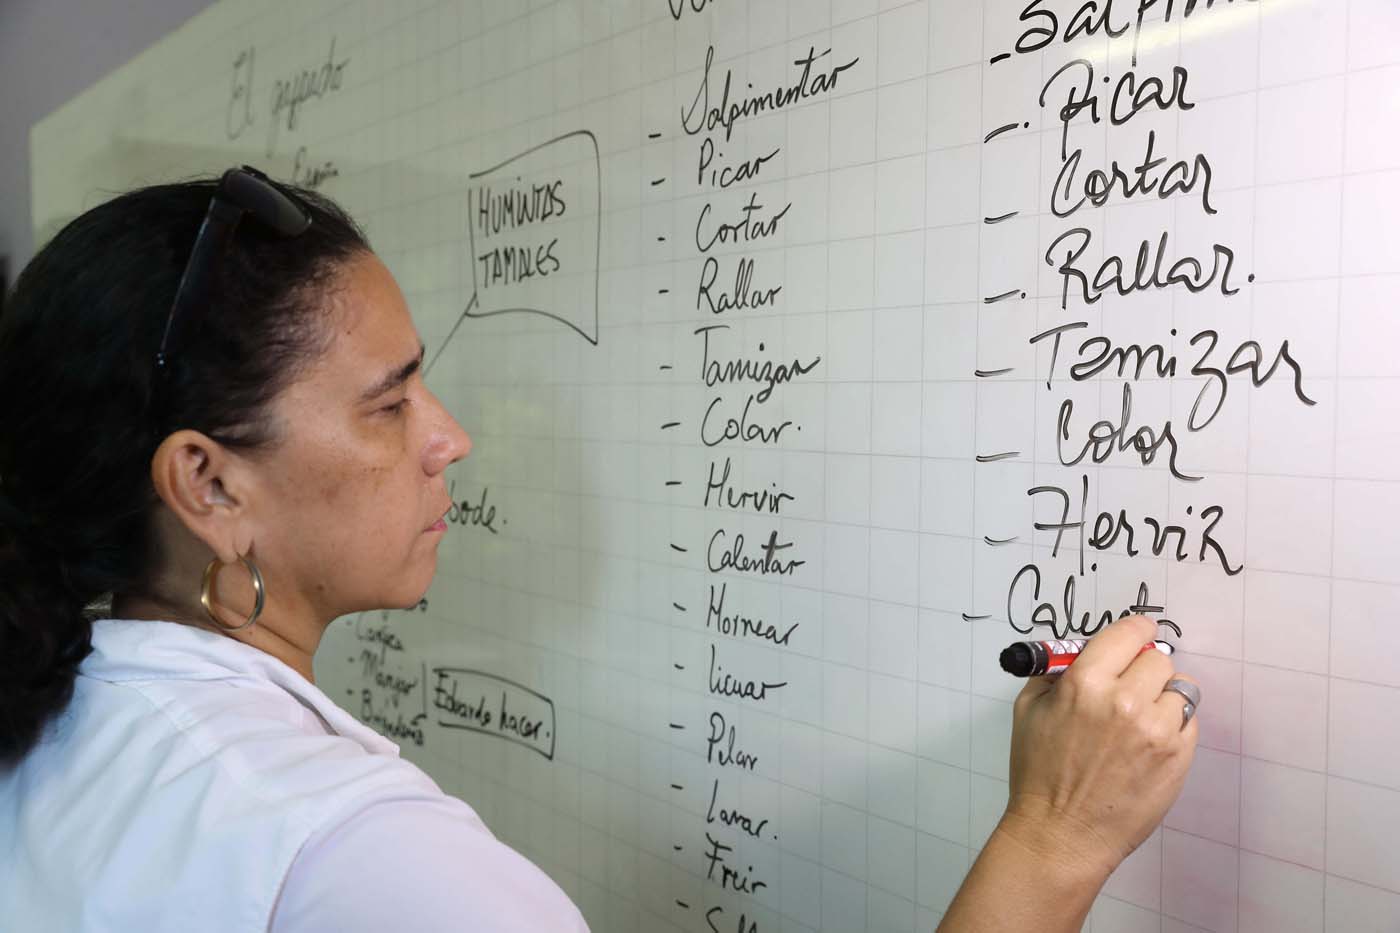 El gazpacho
España
HUMINTAS
TAMALES
bode.
- Manjar
Eduardo hacer.
- Salpimentar
- Picar
- Cortar
- Rallar
- Tamizar
- Colar.
- Hervir
- Calentar
- Hornear
- licuar
- Pelar
- Lavar.
- Freir
- Salpime
- Picar
- Cortar
- Rallar.
- Tamizar
- Color
- Hervir
- Calenta